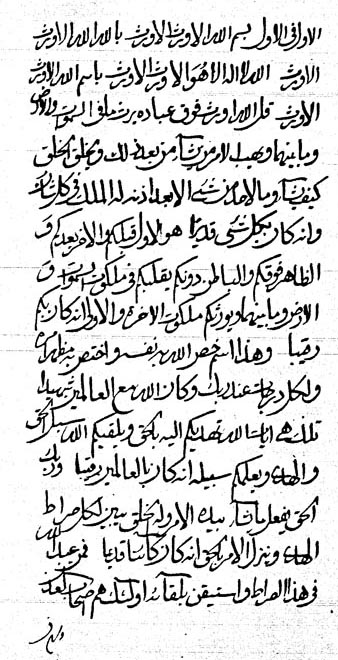 الاول في الاول بسم الله الاورث الاورث بالله الله الاورث
الاورث الله لا اله الا هو الاورث الاورث باسم الله الاورث
الاورث قل الله اورث فوق عباده يرث ملك السموات والارض
وما بينهما ويهب لمن يشاء من بعد ذلك ويخلق الخلق
كيف يشاء وما لاحد من شيء الا بعد اذنه له الملك في كل شان
وانه كان بكل شيء قديرا هو الاول قبلكم والاخر بعدكم و
الظاهر فوقكم والباطن دونكم يقلبكم في ملكوت السموات و
الارض وما بينهما ويورثكم ملكوت الاخرة والاولى انه كان بكم
رقيبا وهذا اسم خص الله به نفسه واختص به مظهره
ولكل درجات عند ربك وكان الله مع العالمين شهيدا
تلك هي ايات الله تهديكم اليه بالحق ويلقيكم الله سبيل الحق
والهدى ويعلمكم سبيله انه كان بالعالمين رقيبا وربك
الحق يفعل ما يشاء بيده الامر وله الخلق يبين لكل صراط
الهدى وينزل الامر بالحق انه كان قديما فمن عبد الله
في هذا الصراط واستيقن بلقائه اولئك هم اصحاب العدل